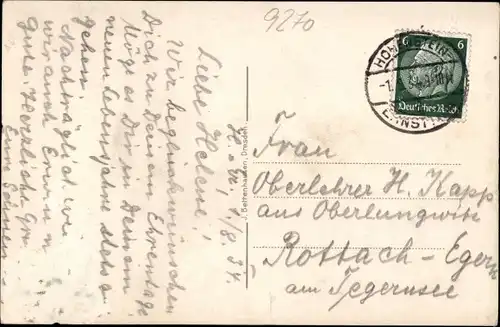 9270
H.-Er., 1/8. 34.
Liebe Helene!
Wir beglückwünschen
Dich zu Deinem Ehrentage.
Möge es Dir in Deinem
neuen Lebensjahre stets
gehen!
Nachträglich
wir auch Erwin
Gute. Herzliche
Eure
HOHENSTEIN-
ERNSTTHAL
6 6
Deutsches Reich
Bettenhausen, Dresden
Frau
Oberlehrer H. Kapp
aus Oberlungwitz
Rottach-Egern
am Tegernsee